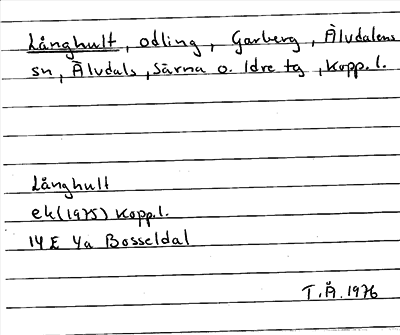 Långhult, odling, Garberg, Älvdalens
sn, Älvdals, Särna o. Idre tg, Kopp. l.
Långhult
ek (1975) Kopp. l.
14 E 4a Bosseldal
T. Å. 1976